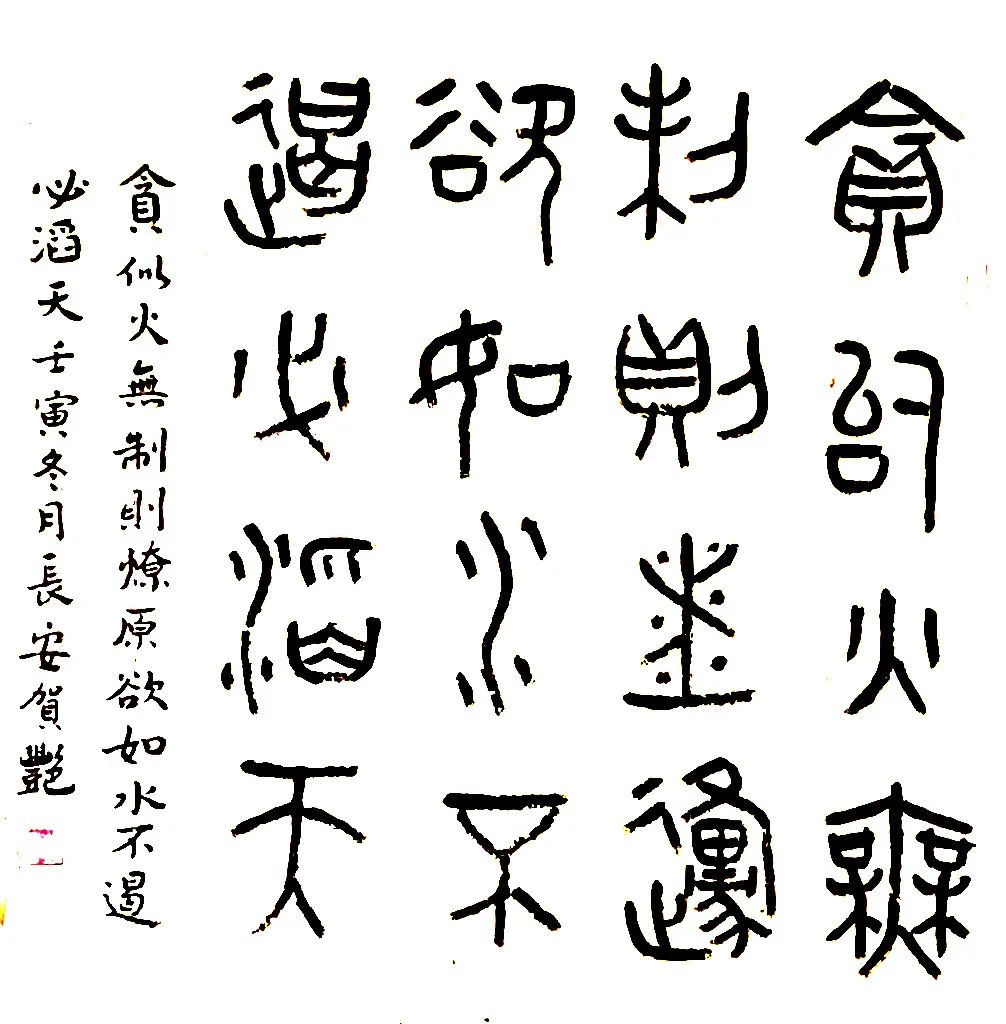 貪似火無
制則燎原
欲如水不
遏必滔天
貪似火無制則燎原欲如水不遏
必滔天壬寅冬月長安賀艷